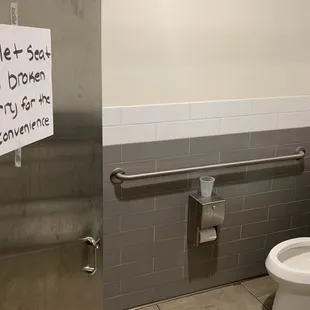 let seat
broken
rry for the
convenience